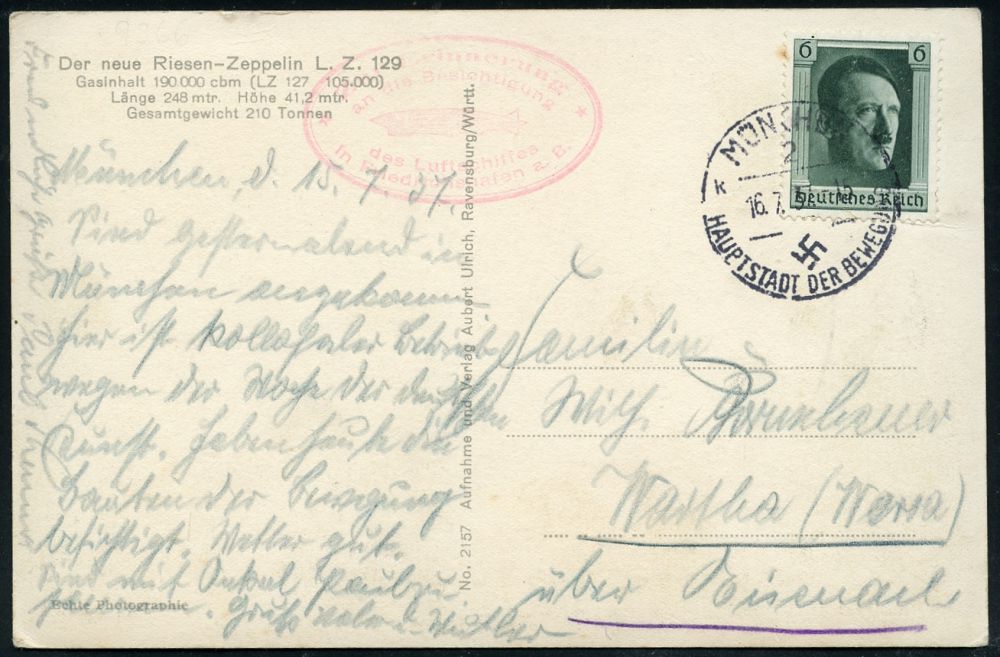 Der neue Riesen-Zeppelin L. Z. 129
Gasinhalt 190.000 cbm (LZ 127 105.000)
Länge 248 mtr. Höhe 41,2 mtr.
Gesamtgewicht 210 Tonnen
Zur Erinnerung
an die Besichtigung
des Luftschiffes
in Friedrichshafen a. B.
6 6
Deutsches Reich
MÜNCHEN
2
k
16.7.37. 12
HAUPTSTADT DER BEWEGUNG
München, d. 15.7.37.
Sind gestern abend in
München angekommen
hier ist kollossaler Betrieb
wegen der Woche der deutschen
Kunst. Haben heute die
Bauten der Bewegung
besichtigt. Wetter gut.
Sind mit Onkel Paul zu
Gruß Vater u. Mutter
No. 2157 Aufnahme und Verlag Aubert Ulrich, Ravensburg/Württ.
Familie
Wilh.
Wartha (Werra)
über Eisenach
Echte Photographie